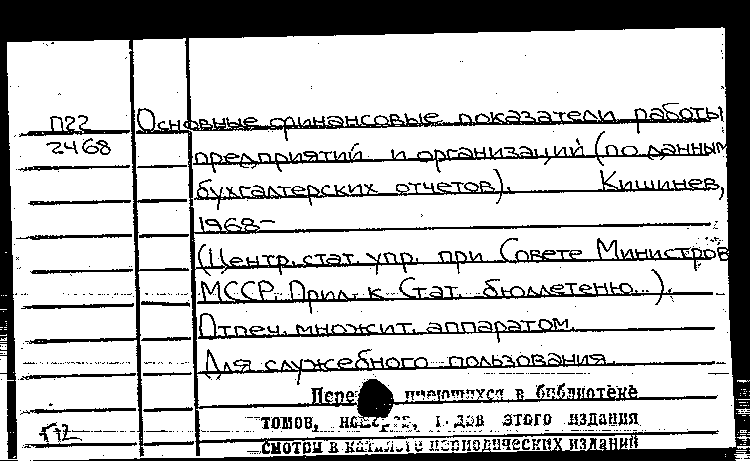 П22 Основные финансовые показатели работы
2468 предприятий и организаций (по данным
бухгалтерских отчетов). Кишинев,
1968-
(Центр. стат. упр. при Совете Министров
МССР. Прил. к Стат. бюллетеню...).
Отпеч. множит. аппаратом.
Для служебного пользования.
имеющихся в библиотеке
томов, этого издания
смотри в каталоге периодических изданий